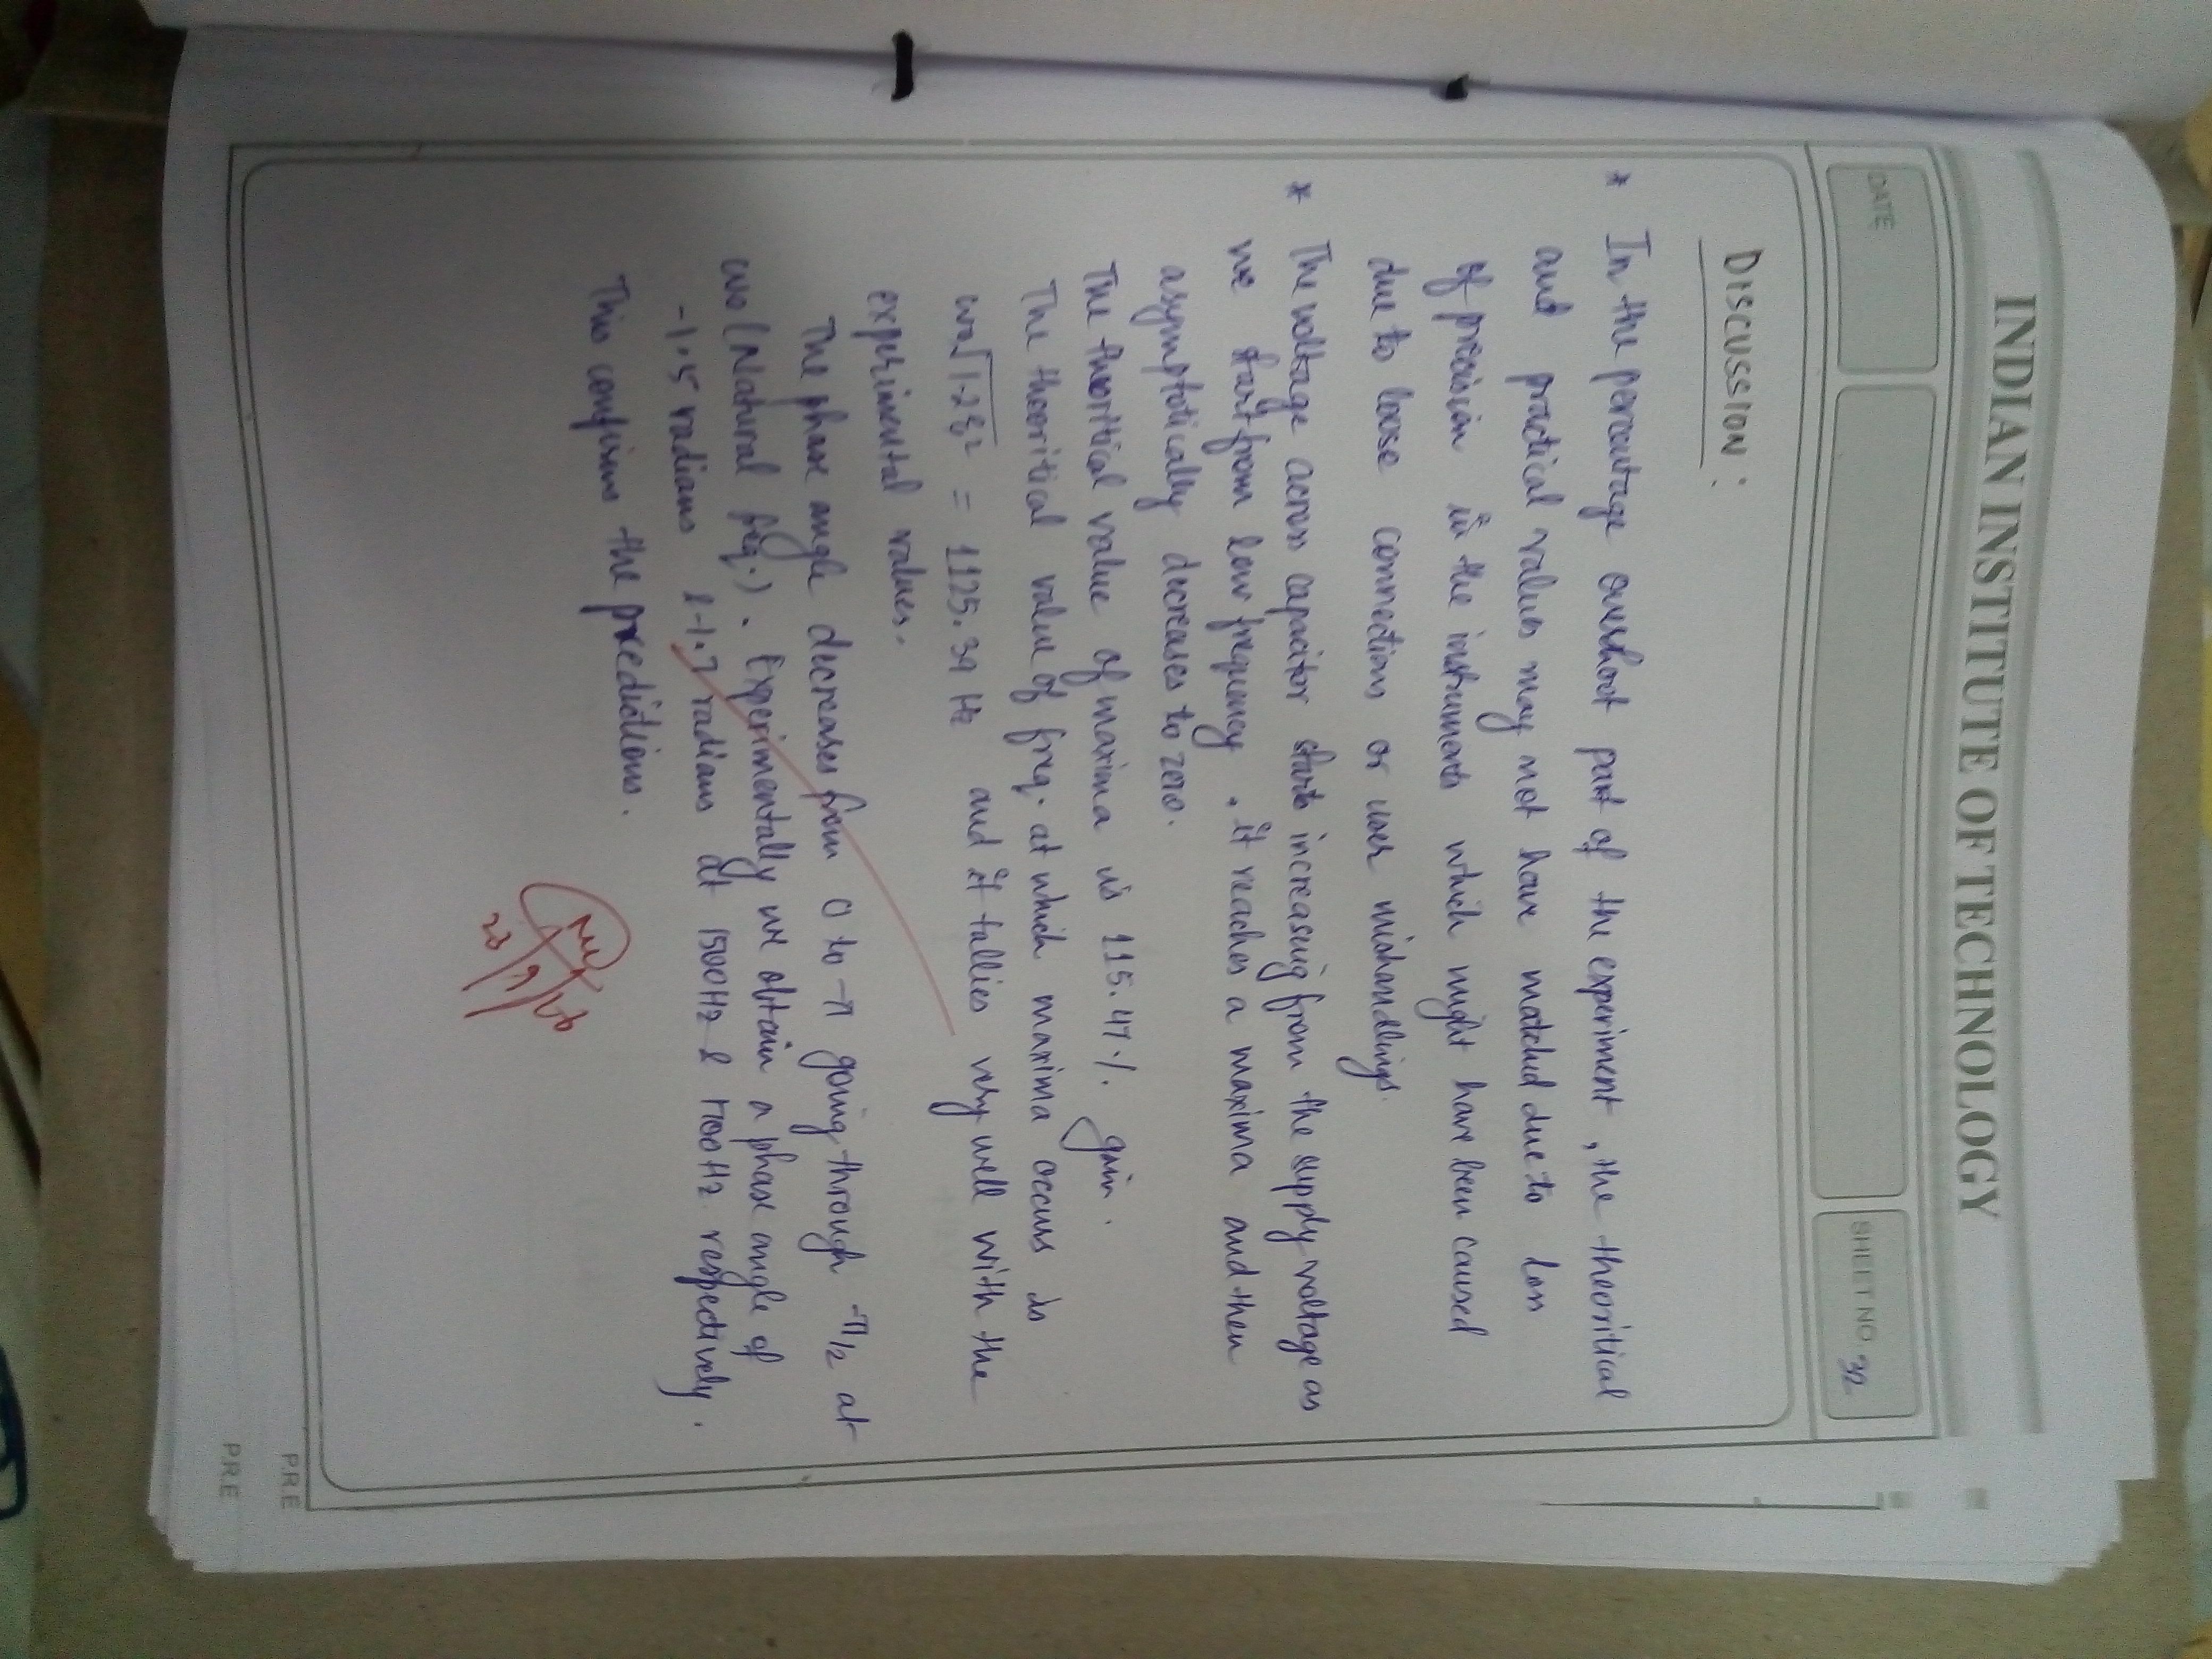 INDIAN INSTITUTE OF TECHNOLOGY
DATE
SHEET NO. 32
DISCUSSION :
* In the percentage overshoot part of the experiment, the theoritical
and practical values may not have matched due to loss
of precision in the instruments which might have been caused
due to loose connections or user mishandlings.
* The voltage across capacitor starts increasing from the supply voltage as
we start from low frequency. it reaches a maxima and then
asymptotically decreases to zero.
The theoritical value of maxima is 115.47 % gain.
The theoritical value of freq. at which maxima occurs is
ω₀√1-2ξ² = 1125.39 Hz and it tallies very well with the
experimental values.
The phase angle decreases from 0 to -π going through -π/2 at
ω₀ (Natural freq.). Experimentally we obtain a phase angle of
-1.5 radians & -1.7 radians at 1500Hz & 1700Hz respectively.
This confirms the predictions.
23/9/16
P.R.E
P.R.E